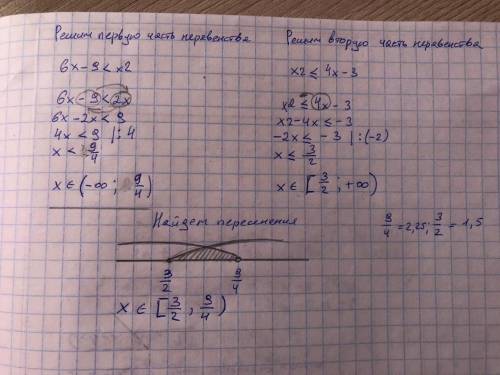 Решим первую часть неравенства
6x - 9 < x2
6x - 9 < 2x
6x - 2x < 9
4x < 9 |: 4
x < 9/4
x ∈ (-∞; 9/4)
Решим вторую часть неравенства
x2 ≤ 4x - 3
x2 ≤ 4x - 3
x2 - 4x ≤ - 3
-2x ≤ - 3 |: (-2)
x ≤ 3/2
x ∈ [3/2; +∞)
Найдем пересечения
9/4 = 2,25; 3/2 = 1,5
3/2 9/4
x ∈ [3/2; 9/4)